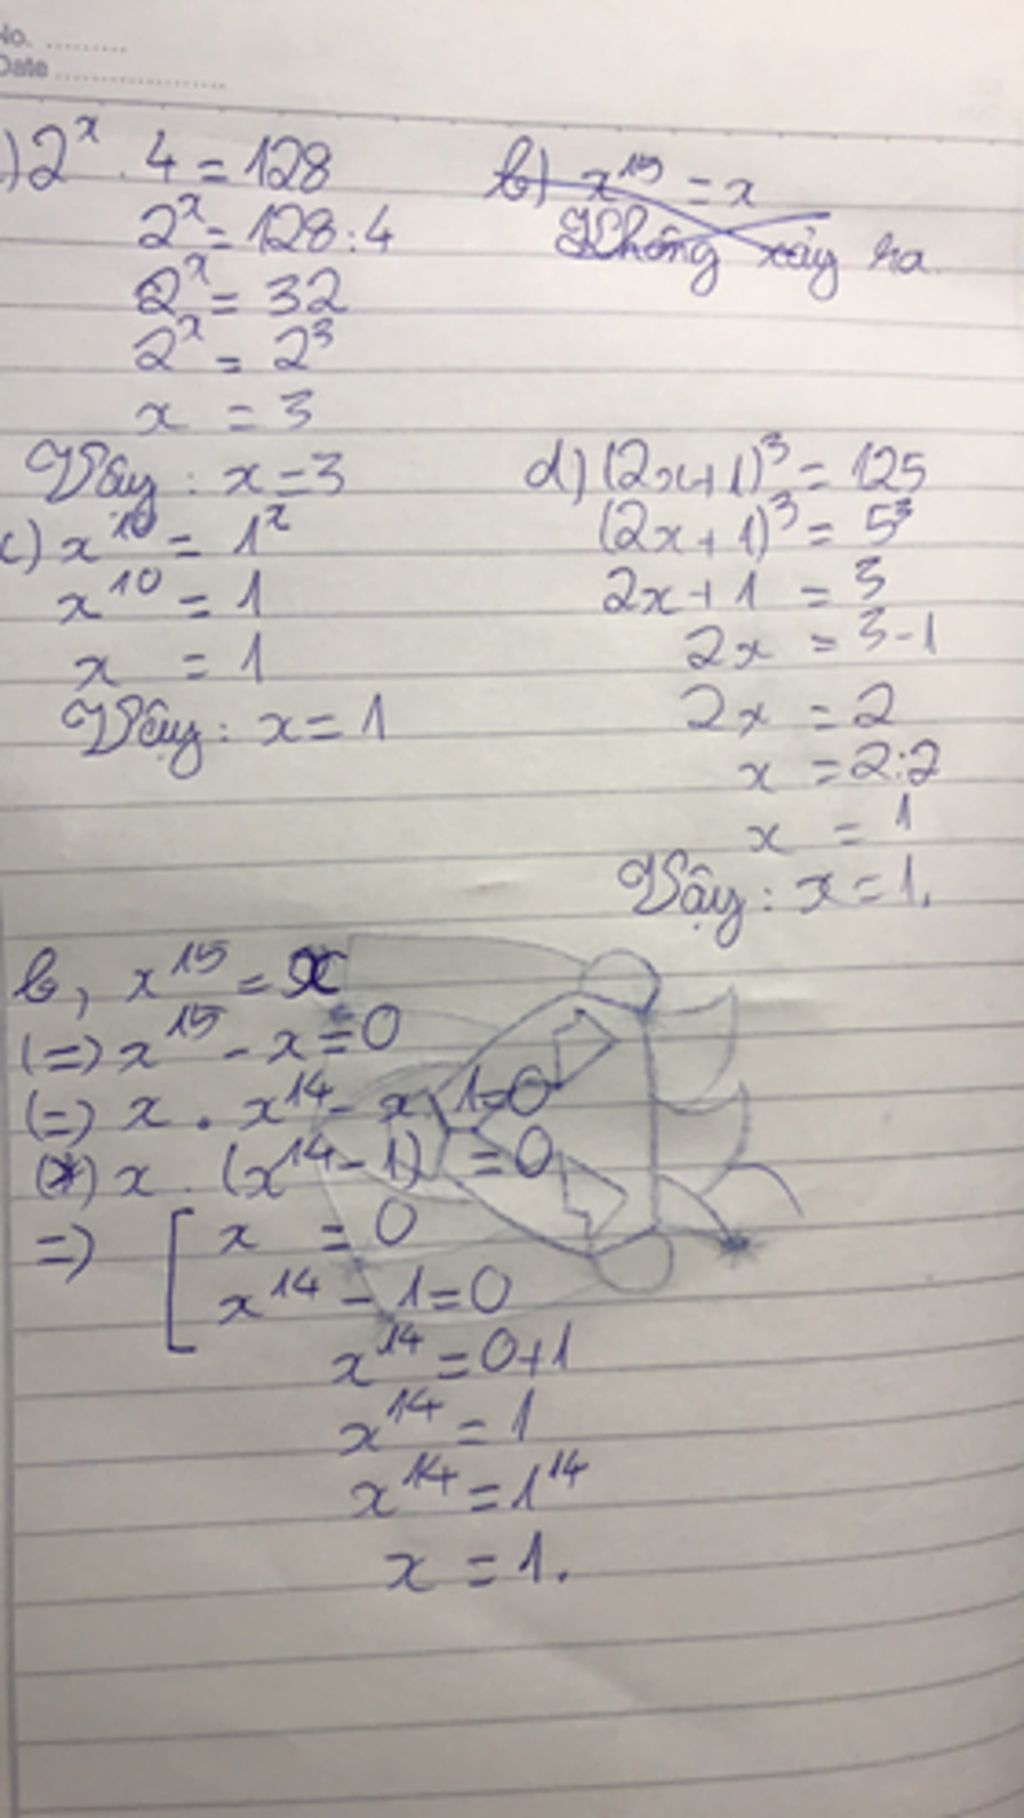 No. ........
Date ................
) 2ˣ . 4 = 128
2ˣ = 128 : 4
2ˣ = 32
2ˣ = 2³
x = 3
Vậy : x = 3
b) x¹⁵ = x
Không xảy ra
c) x¹⁰ = 1ˣ
x¹⁰ = 1
x = 1
Vậy : x = 1
d) (2x+1)³ = 125
(2x+1)³ = 5³
2x+1 = 3
2x = 3-1
2x = 2
x = 2:2
x = 1
Vậy : x = 1.
b, x¹⁵ = x
(=) x¹⁵ - x = 0
(=) x . x¹⁴ - x . 1 = 0
(*) x . (x¹⁴ - 1) = 0
=) [ x = 0
x¹⁴ - 1 = 0
x¹⁴ = 0+1
x¹⁴ = 1
x¹⁴ = 1¹⁴
x = 1.